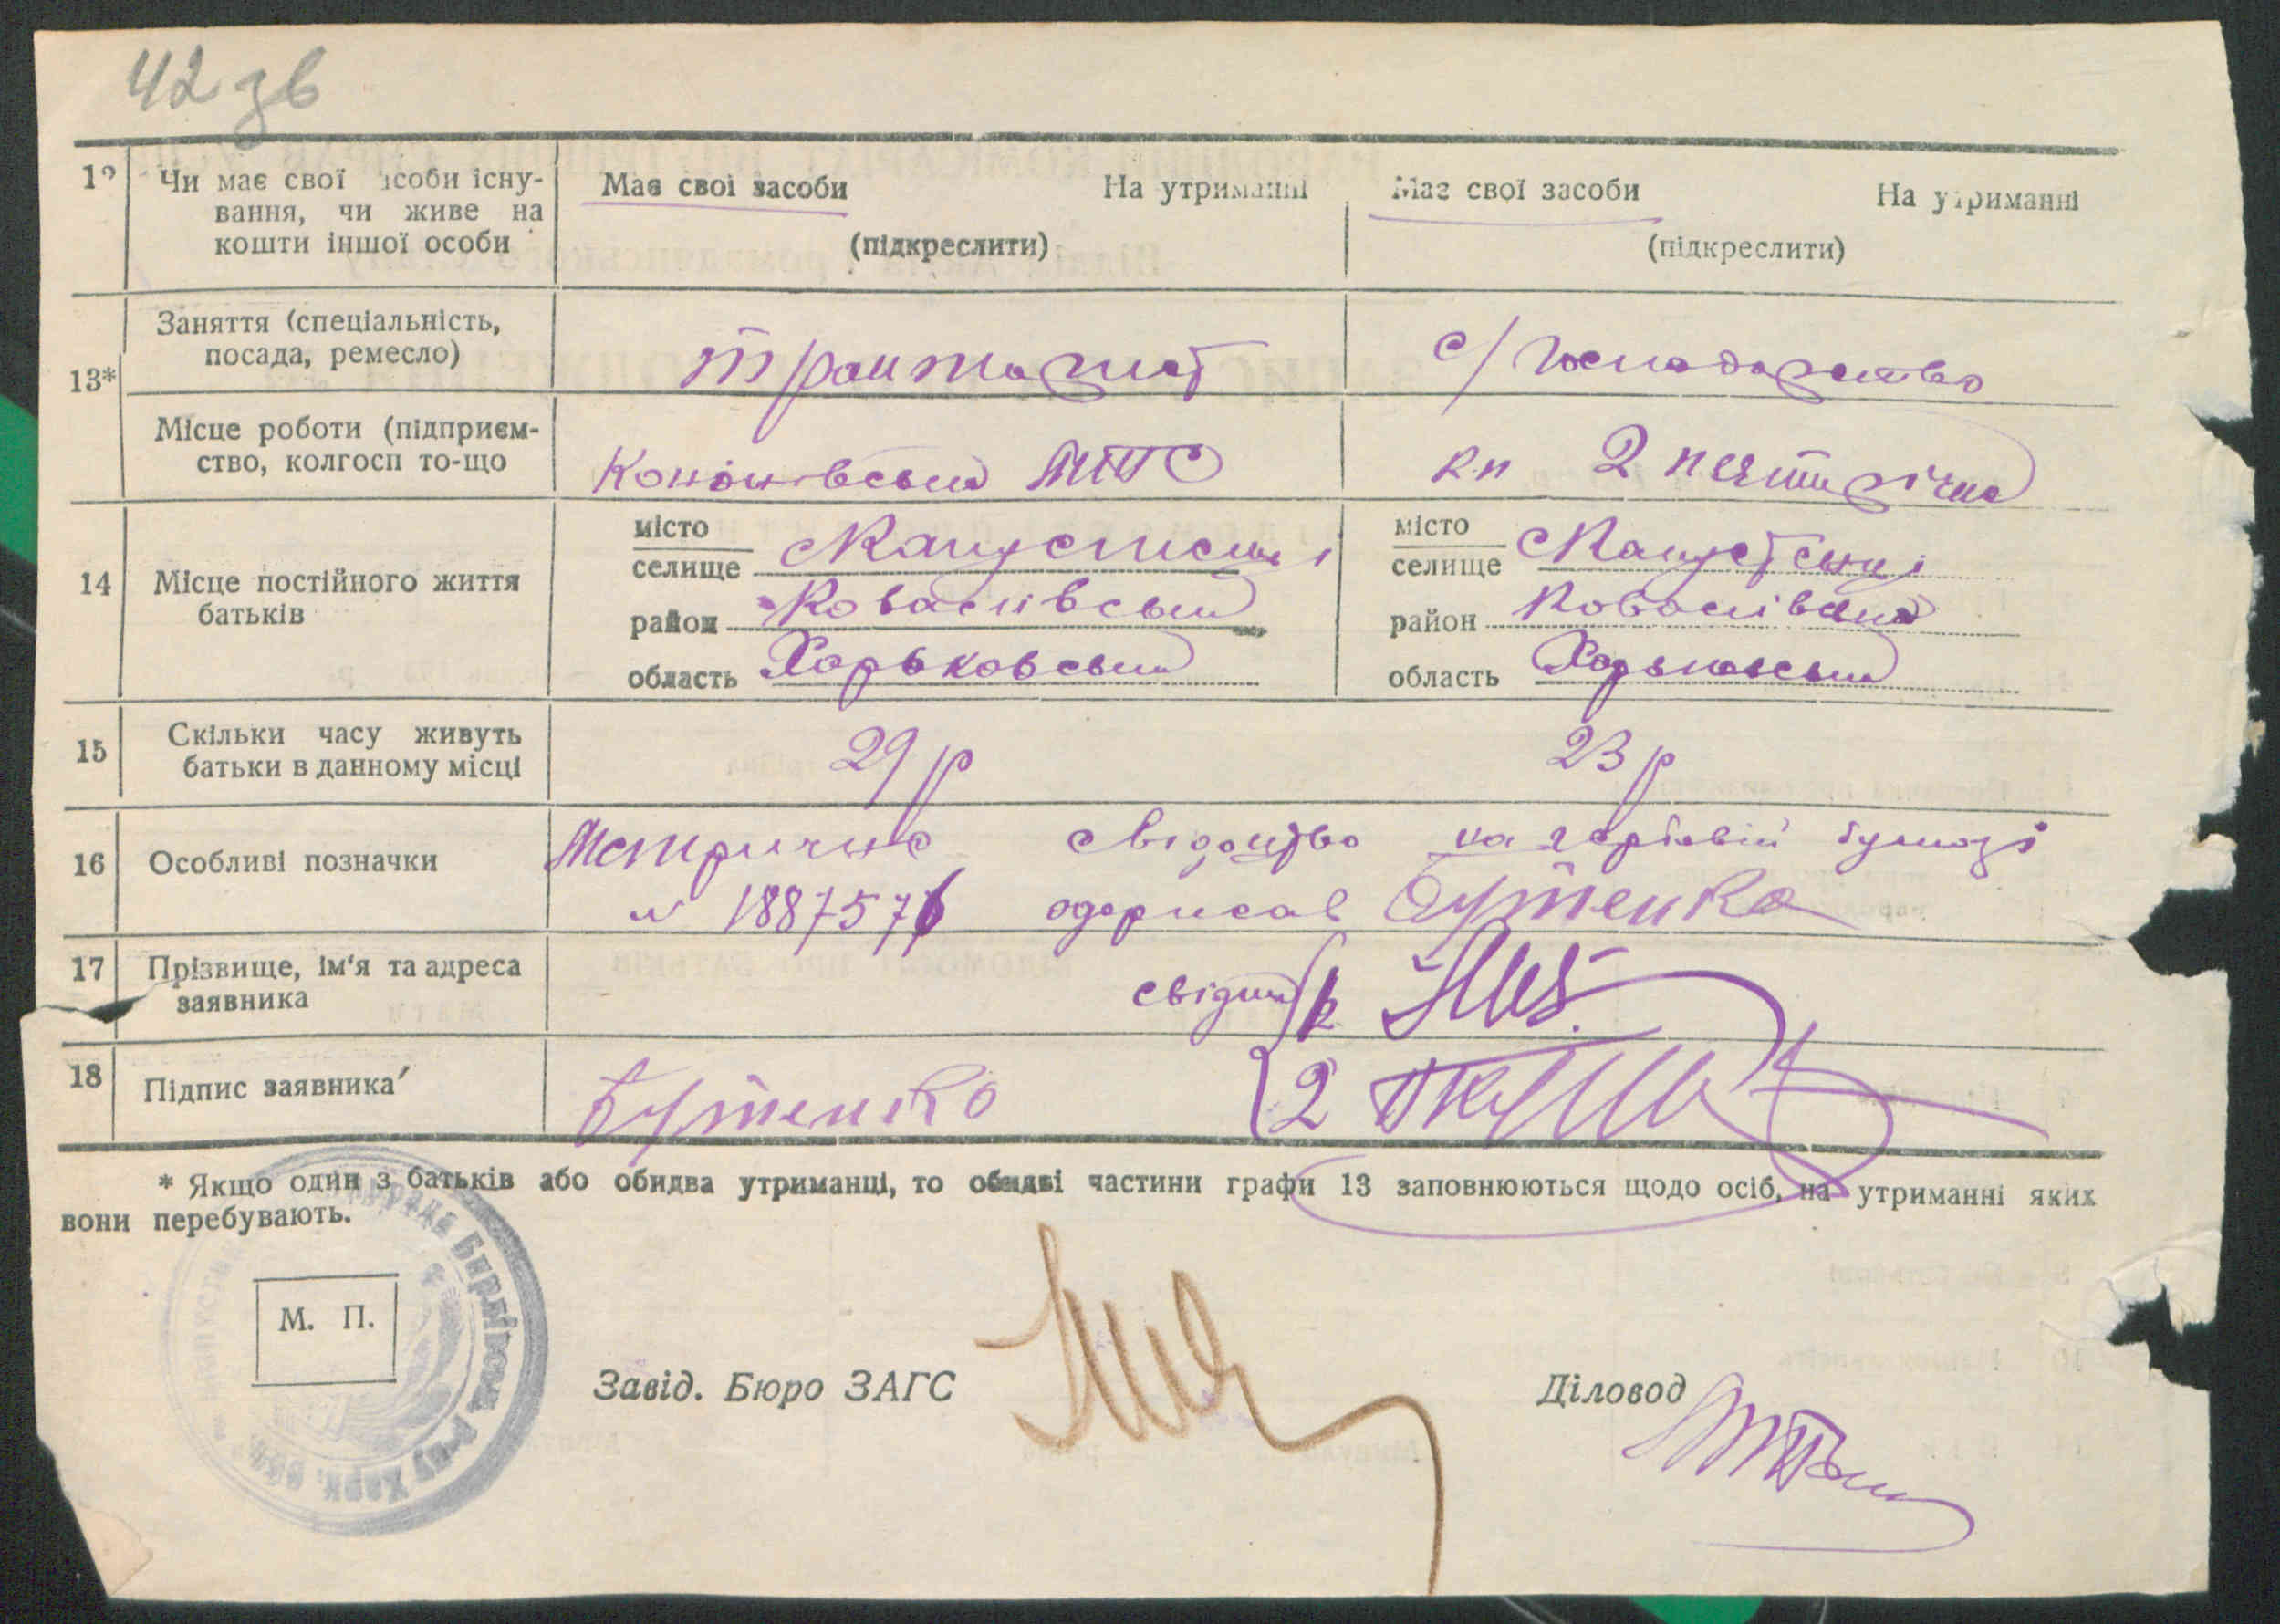 42 зв
12 Чи має свої засоби існу- Має свої засоби На утриманні Має свої засоби На утриманні
вання, чи живе на
кошти іншої особи (підкреслити) (підкреслити)
Заняття (спеціальність,
посада, ремесло) с/господарство
13*
Місце роботи (підприєм-
ство, колгосп то-що МТС кп 2 пятирічка
14 Місце постійного життя
батьків
місто
селище
район
область Харьковськи
місто
селище
район
область Харьковськи
15 Скільки часу живуть
батьки в данному місці 29 р 23 р
16 Особливі позначки Метричне свідоцтво на гербовій бумазі
№ 1887576 одержав Бутенко
17 Прізвище, ім'я та адреса
заявника свідки
18 Підпис заявника Бутенко 2
* Якщо один з батьків або обидва утриманці, то обидві частини графи 13 заповнюються щодо осіб, на утриманні яких
вони перебувають.
М. П.
Завід. Бюро ЗАГС Діловод